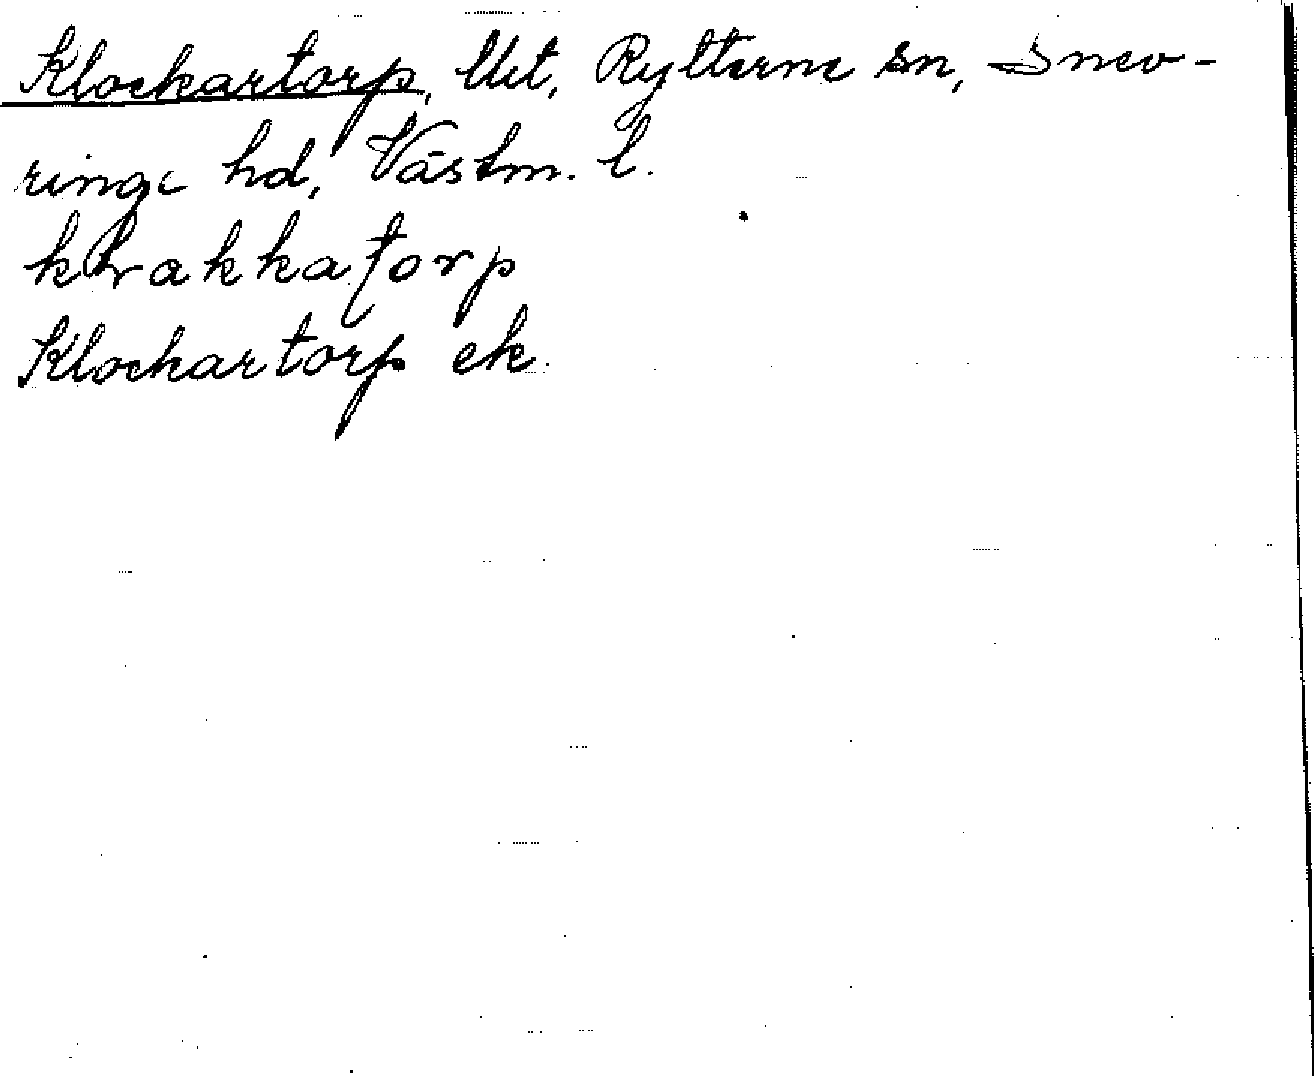 Klockartorp, Utt, Rytterne sn, Snev-
ringe hd, Västm. l.
klrakkatorp
Klockartorp ek.